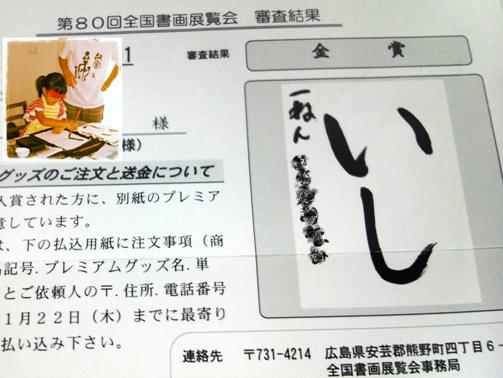 第80回全国書画展覧会 審査結果
1
審査結果
金賞
様
様)
一ねん
いし
グッズのご注文と送金について
入賞された方に、別紙のプレミア
意しています。
は、下の払込用紙に注文事項(商
記号.プレミアムグッズ名.単
とご依頼人の〒.住所.電話番号
1月22日(木)までに最寄り
払い込み下さい。
連絡先 〒731-4214 広島県安芸郡熊野町四丁目6-
全国書画展覧会事務局